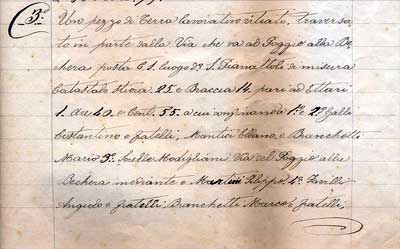 3°
Uno pezzo di Terra lavorativo vitiato, traversa-
to in parte dalla Via che va al Poggio alla Pe-
chera posto C.S. luogo d° S. Piana ttoli di misura
catastale stiora 25 e Braccia 14 pari ad Ettari
1. due 40 e Cent: 55 a cui confinando 1° e 2° Galli
Costantino e fratelli, Mantici Eleana, e Branchetti
Mario 3° Modigliani Via del Poggio alla
Pechera mediante e Martini Filippo, 4° Favilli
Angiolo e fratelli: Branchetti Marco e fratelli,